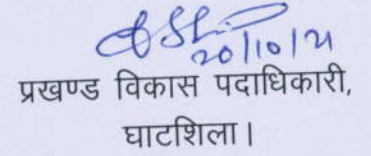 20/10/21
प्रखण्ड विकास पदाधिकारी,
घाटशिला।